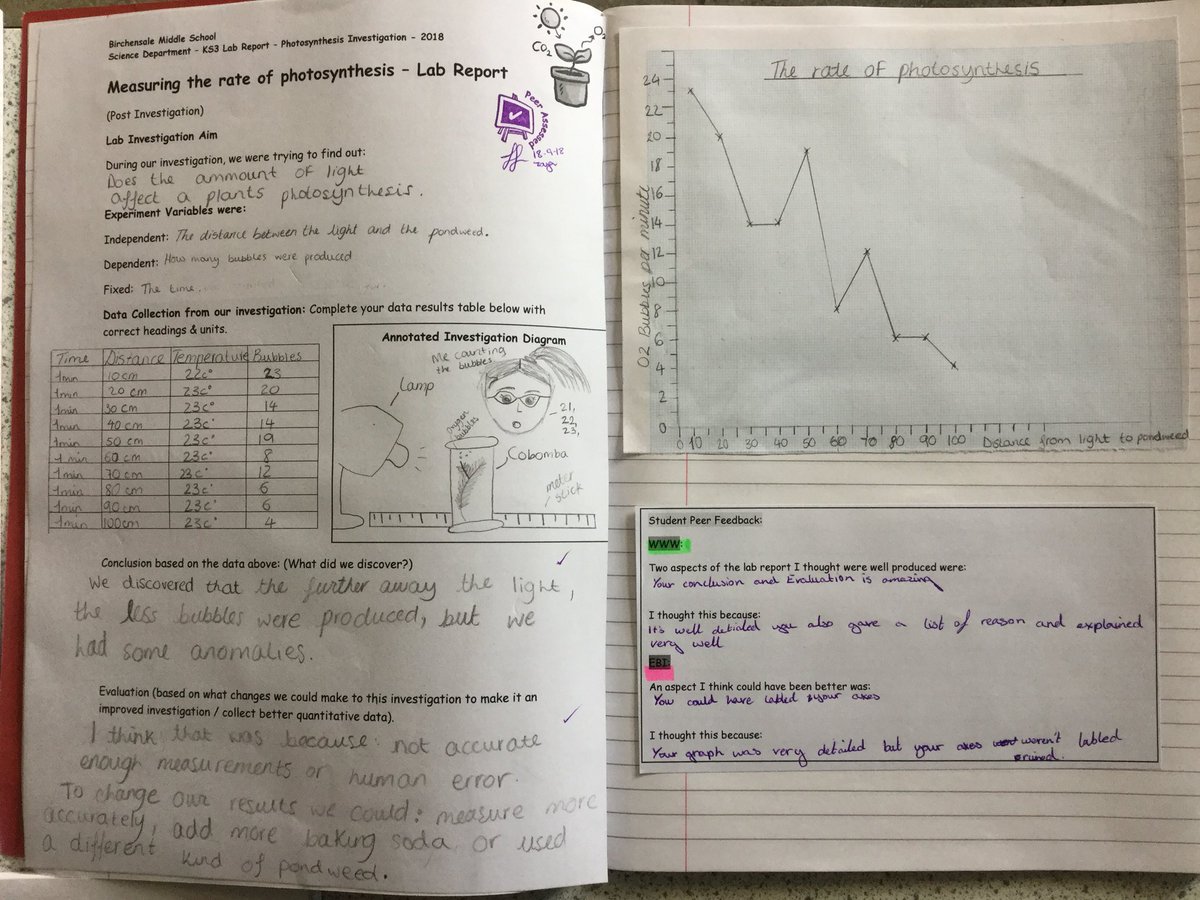 Birchensale Middle School
Science Department - KS3 Lab Report - Photosynthesis Investigation - 2018
CO2
O2
Measuring the rate of photosynthesis - Lab Report
(Post Investigation)
Peer Assessed
18.9.18
Lab Investigation Aim
During our investigation, we were trying to find out:
Does the ammount of light
affect a plants photosynthesis.
Experiment Variables were:
Independent: The distance between the light and the pondweed.
Dependent: How many bubbles were produced
Fixed: The time.
Data Collection from our investigation: Complete your data results table below with
correct headings & units.
Time Distance Temperature Bubbles
1min 10cm 22c° 23
1min 20 cm 23c° 20
1min 30 cm 23c° 14
1min 40 cm 23c° 14
1min 50 cm 23c° 19
1 min 60 cm 23c° 8
1min 70 cm 23c° 12
1min 80 cm 23c° 6
1min 90cm 23c° 6
1min 100cm 23c° 4
Annotated Investigation Diagram
Me counting
the bubbles
Lamp
oxygen
bubbles
21,
22,
23,
Cobomba
meter
stick
Conclusion based on the data above: (What did we discover?)
We discovered that the further away the light,
the less bubbles were produced, but we
had some anomalies.
Evaluation (based on what changes we could make to this investigation to make it an
improved investigation / collect better quantitative data).
I think that was because: not accurate
enough measurements or human error.
To change our results we could: measure more
accurately, add more baking soda or used
a different kind of pondweed.
The rate of photosynthesis
O2 Bubbles per minute
24
22
20
18
16
14
12
10
8
6
4
2
0
0 10 20 30 40 50 60 70 80 90 100 Distance from light to pondweed
Student Peer Feedback:
WWW:
Two aspects of the lab report I thought were well produced were:
Your conclusion and Evaluation is amazing
I thought this because:
It's well detialed you also gave a list of reason and explained
very well
EBI:
An aspect I think could have been better was:
You could have labled your axes
I thought this because:
Your graph was very detailed but your axes weren't labled